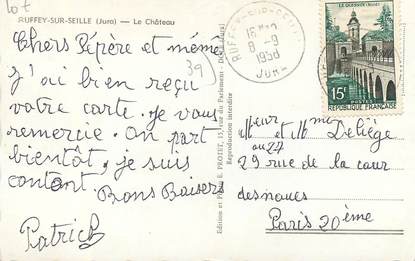 lot
RUFFEY-SUR-SEILLE (Jura) — Le Château
Chers Pépère et mémé
39
J'ai bien reçu
votre carte. Je vous
remercie. On part
bientôt, je suis
content.
Bons Baisers
Patrick
Edition et Photo E. PROTET, 15, rue du Parlement - DOLE (Jura)
Reproduction interdite
RUFFEY-SUR-SEILLE
8-9
1958
JURA
LE QUESNOY (Nord)
15F
POSTES
RÉPUBLIQUE FRANÇAISE
Mr et Mme Deliège
au 27
29 rue de la cour
des noues
Paris 20ème